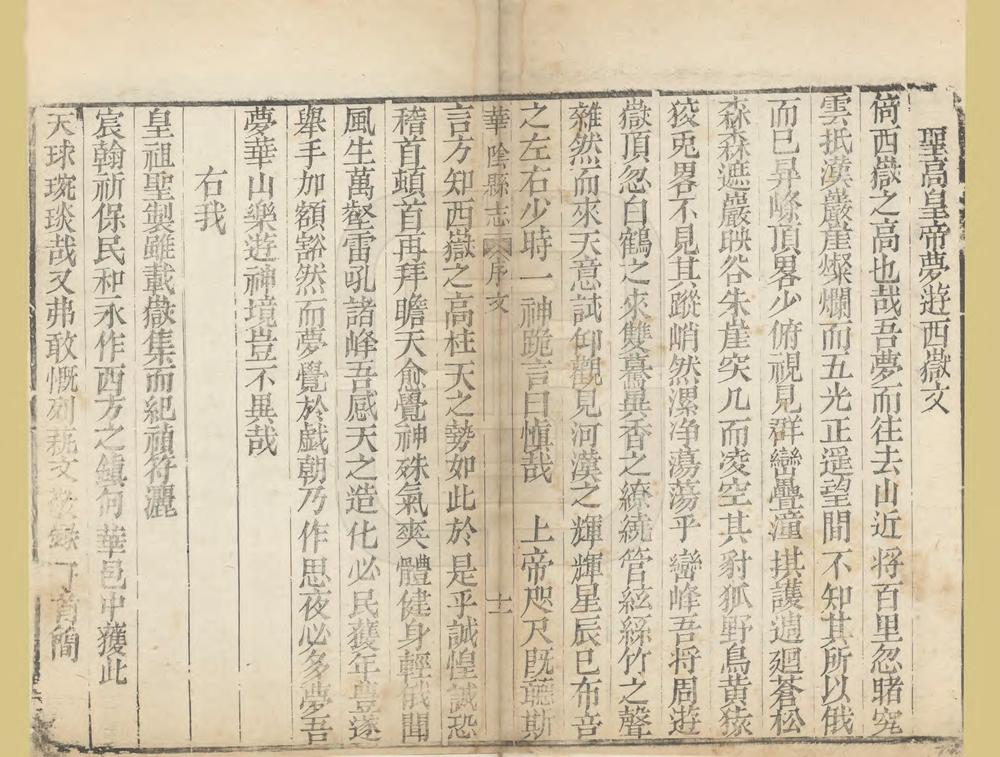 聖高皇帝夢遊西嶽文
猗西嶽之高也哉吾夢而往去山近將百里忽睹穹
雲抵漢巖崖燦爛而五光正遥望間不知其所以俄
而已昇峰頂畧少俯視見群巒疊瀧拱護週廻蒼松
森森遮巖映谷朱崖突兀而凌空其豺狐野鳥黃猿
狡兎畧不見其蹤峭然潔净蕩蕩乎巒峰吾将周遊
嶽頂忽白鶴之來雙鸞異香之繚繞管絃絲竹之聲
雜然而來天意試仰觀見河漢之輝輝星辰巳布吾
之左右少時一神跪言曰慎哉上帝咫尺既聽斯
華陰縣志 序文 十一
言方知西嶽之高柱天之勢如此於是乎誠惶誠恐
稽首頓首再拜瞻天愈覺神殊氣爽體健身輕俄聞
風生萬壑雷吼諸峰吾感天之造化必民獲年豊遂
舉手加額豁然而夢覺於戯朝乃作思夜必多夢吾
夢華山樂遊神境豈不異哉
右我
皇祖聖製雖載嶽集而紀禎符灑
宸翰祈保民和永作西方之鎮何華邑中獲此
天球琬琰哉又弗敢慨列藝文敬錄了首簡